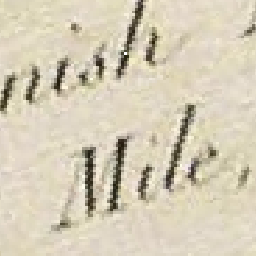 nish
Mile,